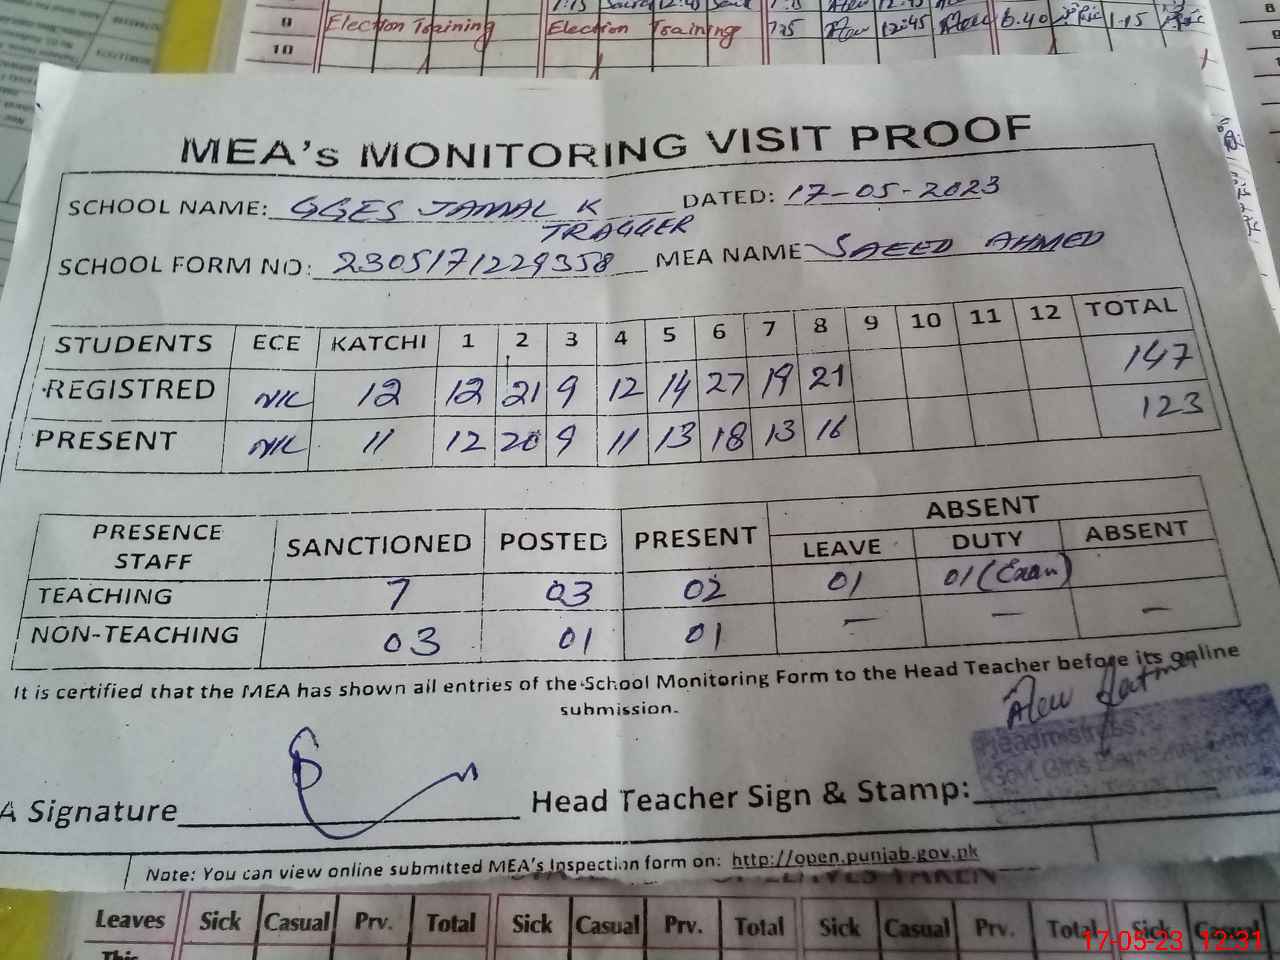 9 Election Training Election Training 7:25 12:45 6.40 1.15
10
MEA's MONITORING VISIT PROOF
SCHOOL NAME: GGES JAMAL K TRAGGER DATED: 17-05-2023
SCHOOL FORM NO: 2305171229358 MEA NAME SAEED AHMED
STUDENTS ECE KATCHI 1 2 3 4 5 6 7 8 9 10 11 12 TOTAL
REGISTRED NIL 12 12 21 9 12 14 27 19 21 147
PRESENT NIL 11 12 20 9 11 13 18 13 16 123
PRESENCE STAFF SANCTIONED POSTED PRESENT ABSENT
LEAVE DUTY ABSENT
TEACHING 7 03 02 01 01 (Exam)
NON-TEACHING 03 01 01 — — —
It is certified that the MEA has shown all entries of the School Monitoring Form to the Head Teacher before its online
submission.
Headmistress
Govt. Girls Elementary School
A Signature Head Teacher Sign & Stamp:
Note: You can view online submitted MEA's Inspection form on: http://open.punjab.gov.pk
Leaves Sick Casual Prv. Total Sick Casual Prv. Total Sick Casual Prv. Total Sick Casual
This
17-05-23 12:31